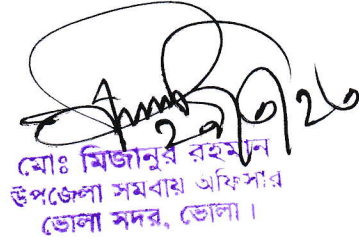 ২৭/৩/২৬
মোঃ মিজানুর রহমান
উপজেলা সমবায় অফিসার
ভোলা সদর, ভোলা।